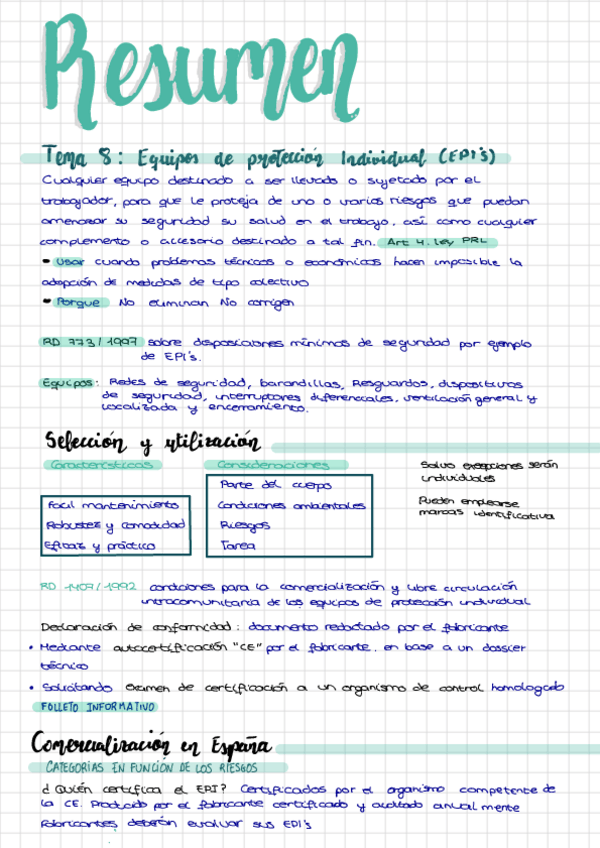 Resumen
Tema 8: Equipos de protección Individual (EPI's)
Cualquier equipo destinado a ser llevado o sujetado por el
trabajador, para que le proteja de uno o varios riesgos que puedan
amenazar su seguridad su salud en el trabajo, así como cualquier
complemento o accesorio destinado a tal fin. Art 4. ley PRL
- Usar cuando problemas técnicos o económicos hacen imposible la
adopción de medidas de tipo colectivo
- Porque No eliminan No corrigen
RD 773/1997 sobre disposiciones mínimas de seguridad por ejemplo
de EPI's.
Equipos: Redes de seguridad, barandillas, Resguardos, dispositivos
de seguridad, interruptores diferenciales, ventilación general y
localizada y encerramiento.
Selección y utilización
Características
Consideraciones
Fácil mantenimiento
Robustez y comodidad
Eficaz y práctico
Parte del cuerpo
Condiciones ambientales
Riesgos
Tarea
Salvo excepciones serán
individuales
Pueden emplearse
marcas identificativa
RD 1407/1992 condiciones para la comercialización y libre circulación
intracomunitaria de los equipos de protección individual
Declaración de conformidad: documento redactado por el fabricante
• Mediante autocertificación "CE" por el fabricante, en base a un dossier
técnico
• Solicitando examen de certificación a un organismo de control homologado
FOLLETO INFORMATIVO
Comercialización en España
CATEGORÍAS EN FUNCIÓN DE LOS RIESGOS
¿Quién certifica el EPI? Certificados por el organismo competente de
la CE. Producido por el fabricante certificado y auditado anual mente
Fabricantes deberán evaluar sus EPI's